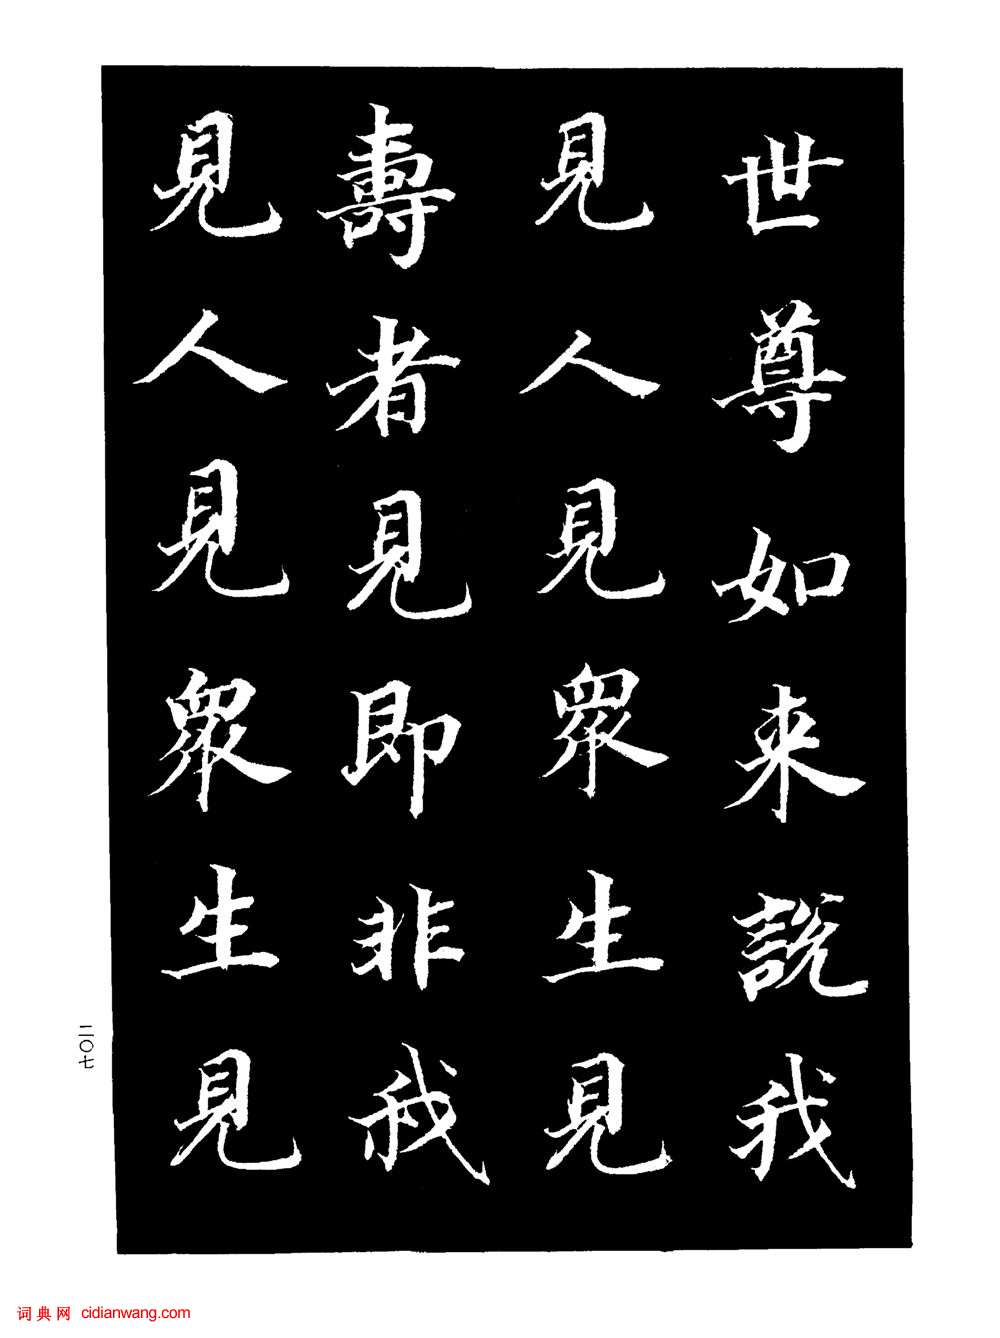 世尊如来說我
見人見眾生見
壽者見即非我
見人見眾生見
二〇七
词典网 cidianwang.com